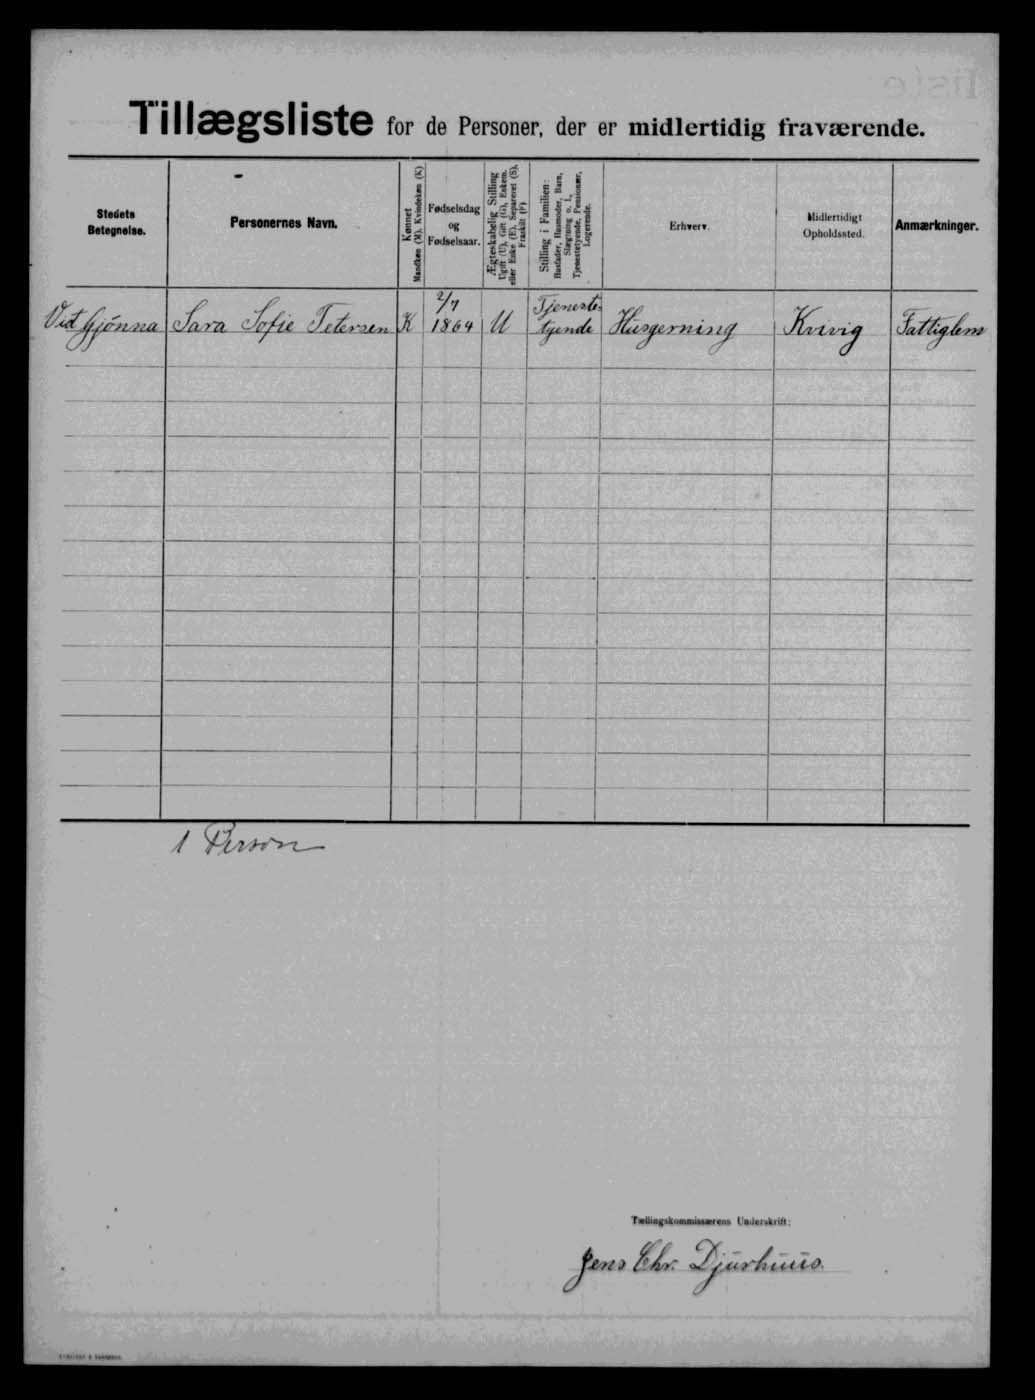 Tillægsliste for de Personer, der er midlertidig fraværende.
Stedets Betegnelse.
Personernes Navn.
Kønnet
Mandkøn (M), Kvindekøn (K)
Fødselsdag
og
Fødselsaar.
Ægteskabelig Stilling
Ugift (U), Gift (G), Enkem.
eller Enke (E), Separeret (S),
Fraskilt (F)
Stilling i Familien:
Husfader, Husmoder, Barn,
Slægtning o. l.,
Tjenestetyende, Pensionær,
Logerende.
Erhverv.
Midlertidigt
Opholdssted.
Anmærkninger.
Vid Gjónna Sara Sofie Petersen K 2/7 1864 U Tjeneste- tyende Husgerning Kvivig Fattiglem
1 Person
Tællingskommissærens Underskrift:
Jens Chr. Djurhuus.